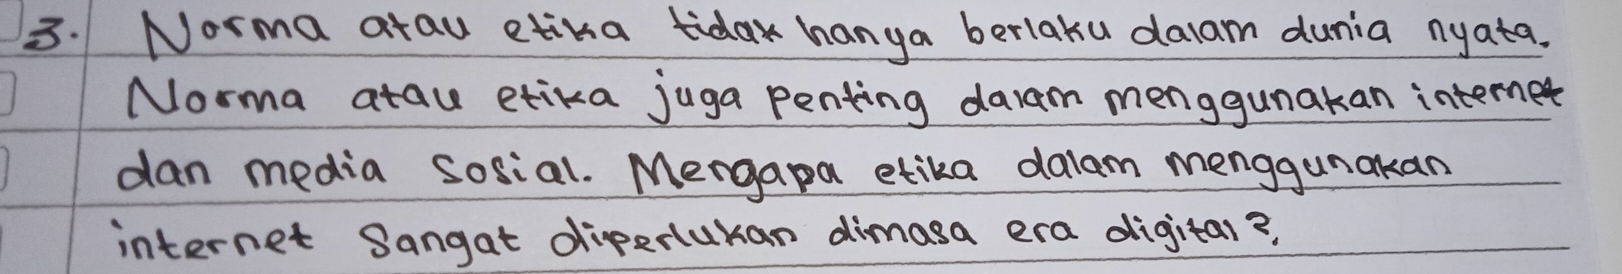 3. Norma atau etika tidak hanya berlaku dalam dunia nyata.
Norma atau etika juga penting dalam menggunakan internet
dan media sosial. Mengapa etika dalam menggunakan
internet sangat diperlukan dimasa era digital?.